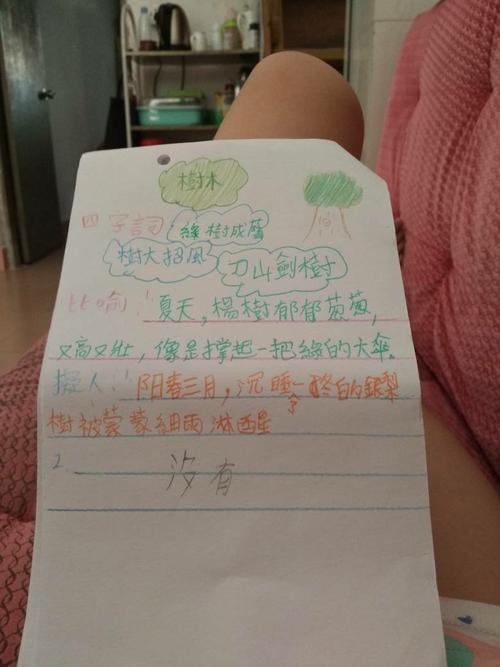 樹木
四字詞 綠樹成蔭
樹大招風 刀山劍樹
比喻：夏天，楊樹郁郁葱葱，
又高又壯，像是撑起一把綠的大傘。
擬人：陽春三月，沉睡了一冬的銀梨
樹被蒙蒙細雨淋醒
2. 沒有